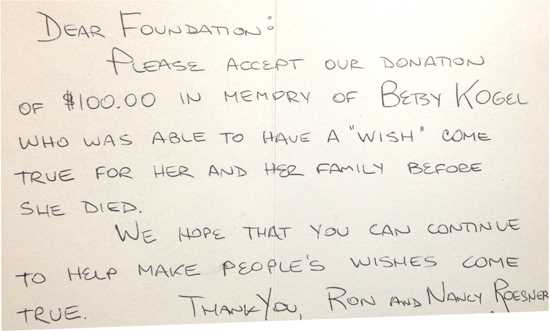 Dear Foundation:
Please accept our donation
of $100.00 in memory of Betsy Kogel
who was able to have a "wish" come
true for her and her family before
she died.
We hope that you can continue
to help make people's wishes come
true. Thank You, Ron and Nancy Roesner